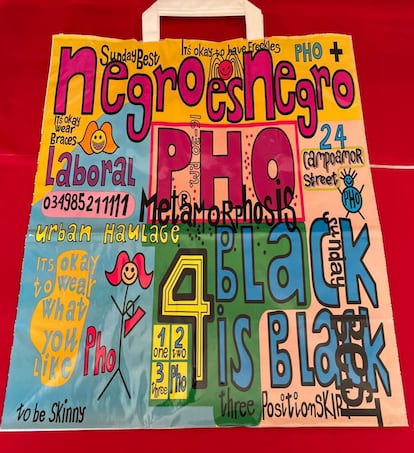 Sunday Best
It's okay to have freckles
PHO +
negro es negro
It's okay
wear
Braces
PHO
24
Campoamor
Street
PHO
Laboral
034985211111
Metamorphosis
urban Haulage
Its okay
to wear
what
you
Like
Pho
4
1 one
2 two
3 three
Pho
BLACK
is BLACK
Sunday
BEST
to be skinny
three Position SKIP